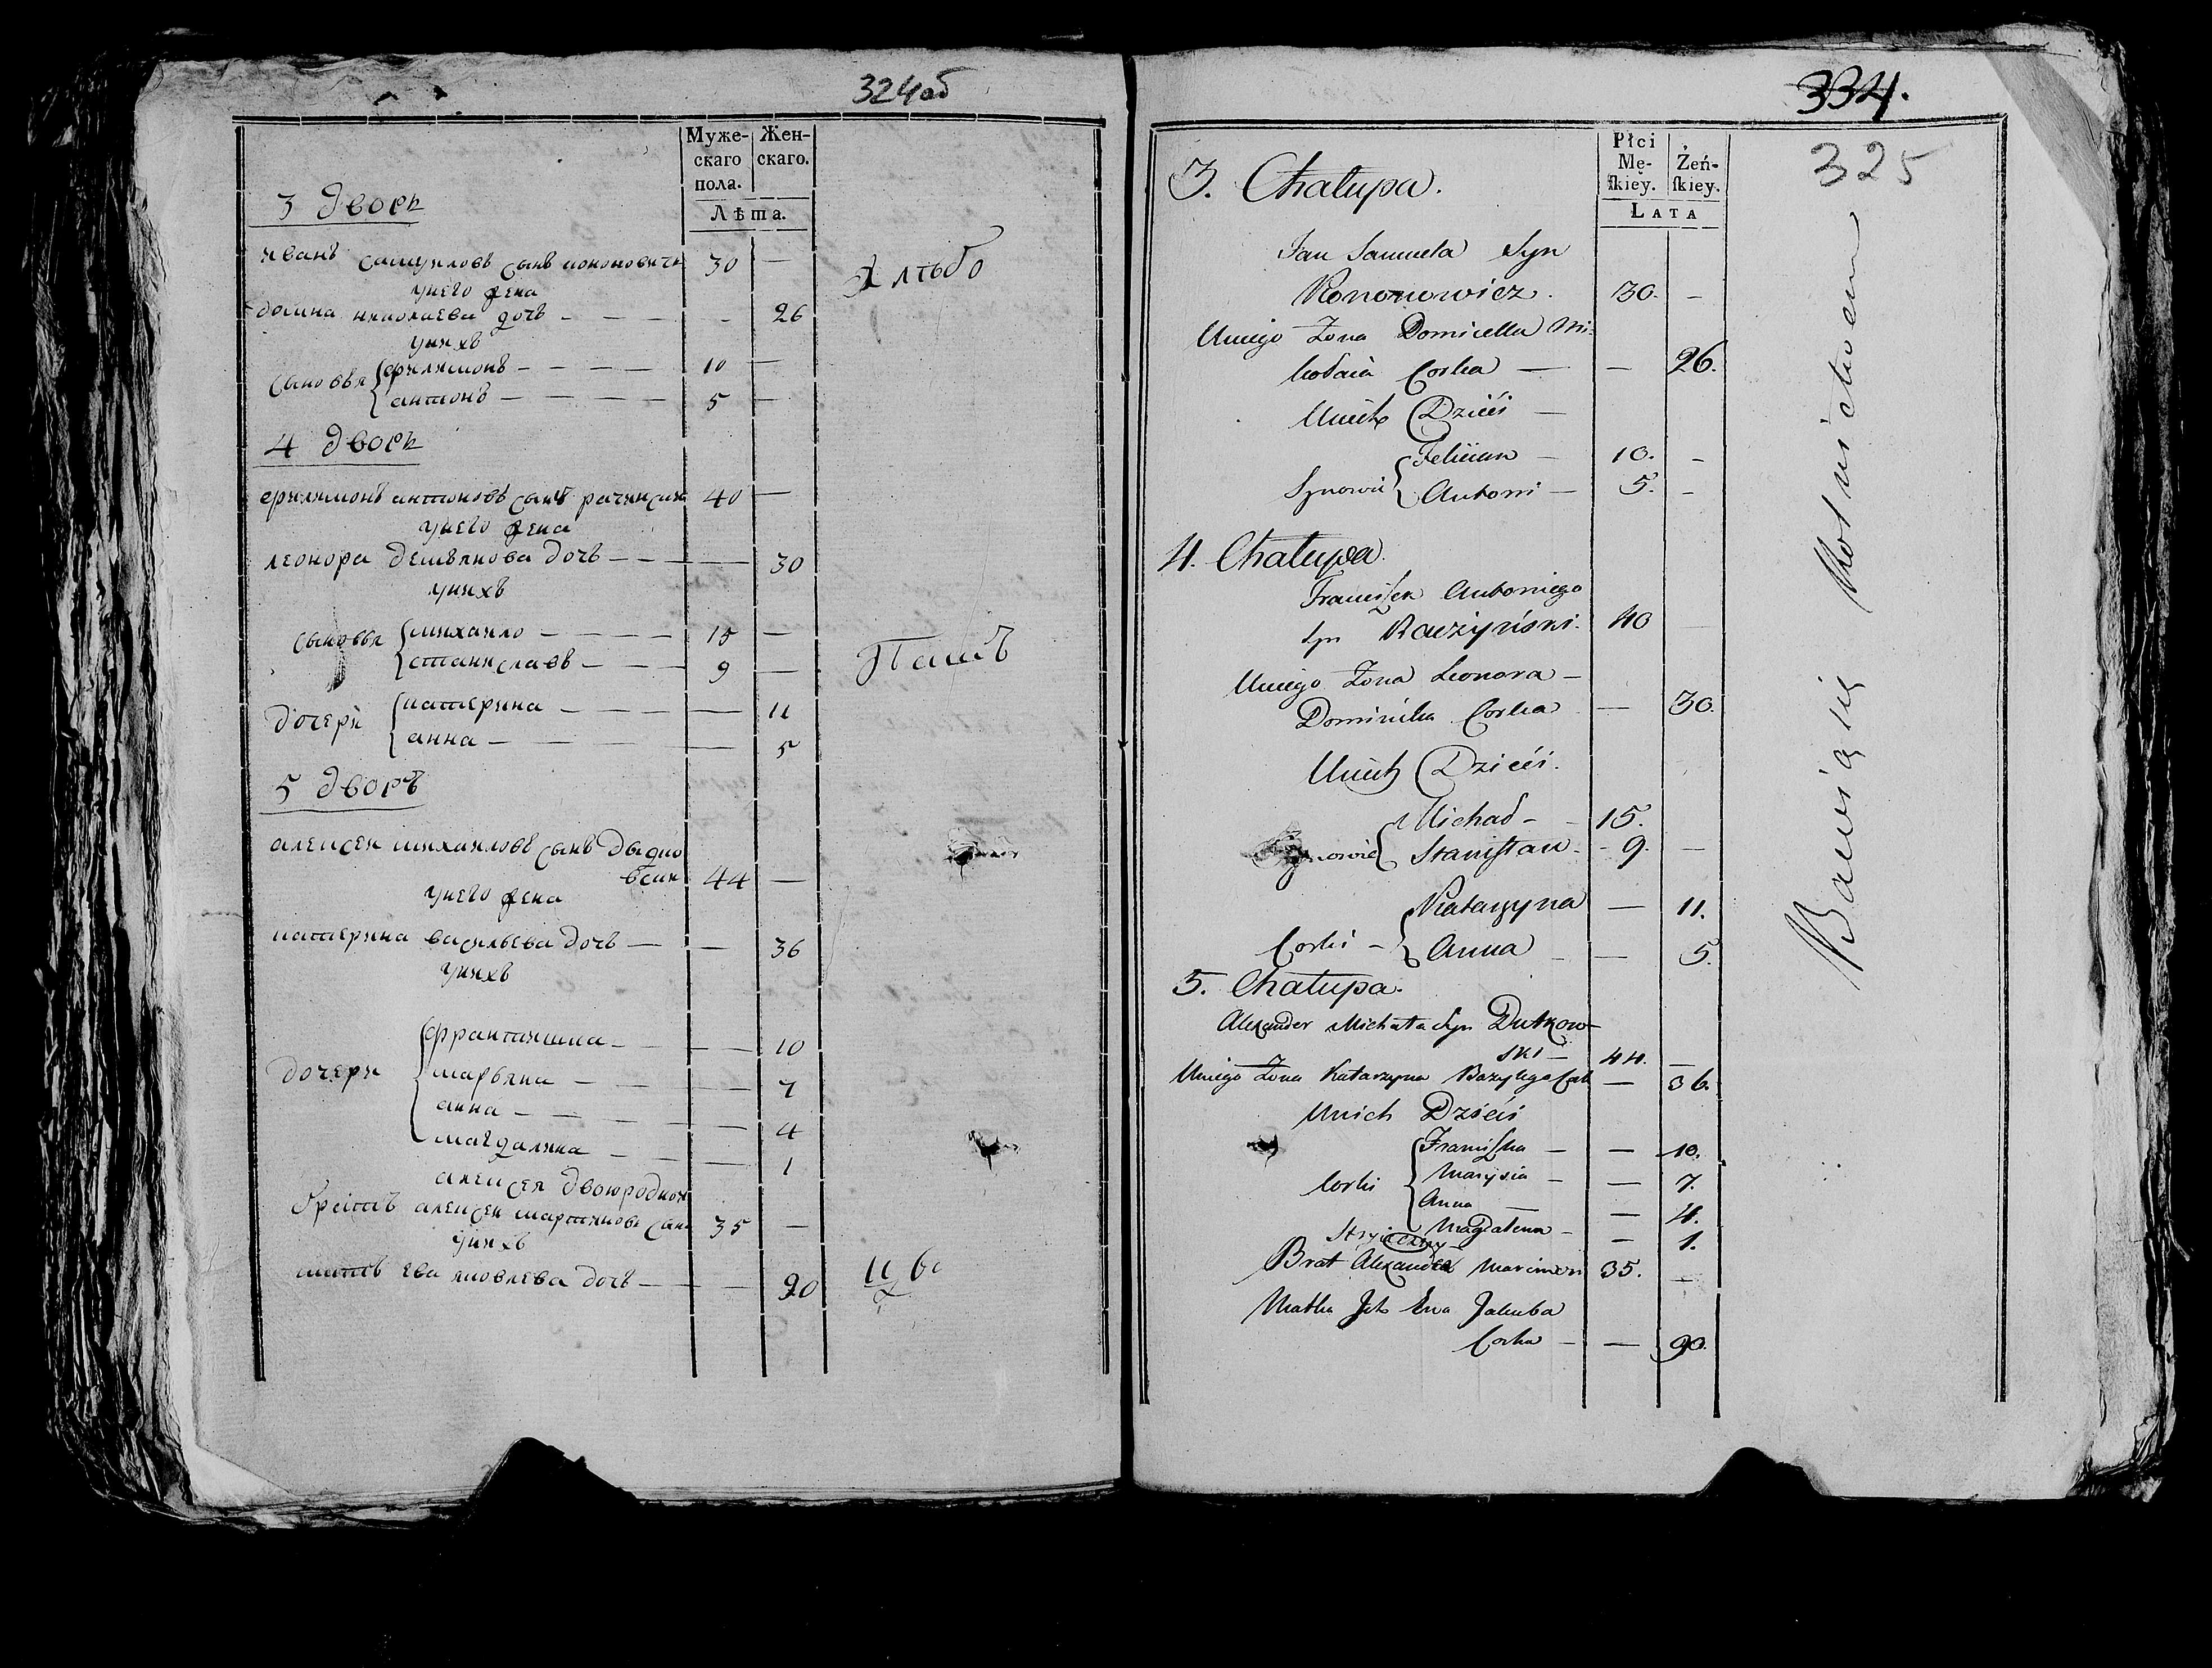 324об
Муже- Жен-
скаго скаго.
пола.
Лѣта.
3 дворъ
иванъ самуиловъ сынъ кононовичъ 30 —
у него жена
домна николаева дочь — — — - 26
у нихъ
сыновья { филимонъ — — — — 10 —
антонъ — — — — 5 —
хлѣбо
4 дворъ
филимонъ антоновъ сынъ рачински 40 —
у него жена
леонора демьянова дочь — — — 30
у нихъ
сыновья { михаило — — — — 15 —
станиславъ — — — 9 —
дочери { катерина — — — — — 11
анна — — — — 5
пашъ
5 дворъ
алексеи михаиловъ сынъ дыдко
вски 44 —
у него жена
катерина васильева дочь — — 36
у нихъ
дочери { франтишка — — — — 10
марьяна — — — — 7
анна — — — — — 4
магдалина — — — 1
алексея двоюродной
братъ алексеи мартиновъ сынъ 35 —
у нихъ
мать ева яковлева дочь — — 90
334.
325
Płci
Mę- Żeń-
ſkiéy. ſkiey.
LATA
3. Chałupa.
Jan Samuela Syn
Kononowicz. 30. —
U niego Żona Domicella Mi-
kołaia Corka — — 26.
U nich Dzieci —
Felician — 10. —
Synowie { Antoni — 5. —
4. Chałupa.
Franciszek Antoniego
Syn Raczyński. 40 —
U niego Żona Leonora —
Dominika Corka — 30.
U nich Dzieci.
Michał — 15.
Synowie { Stanisław — 9. —
Katarzyna — 11.
Corki — { Anna — — 5.
5. Chałupa.
Alexander Michała Syn Dutkow-
ski — 44. —
U niego Żona Katarzyna Bazylego Cork — 36.
U nich Dzieci
Franciszka — — 10.
Corki { Marysia — — 7.
Anna — — 4.
Magdalena — — 1.
Stryieczny —
Brat Alexandra Marcin 35. —
Matka Ich Ewa Jakuba
Corka — — 90.
Bawią się Rolnictwem